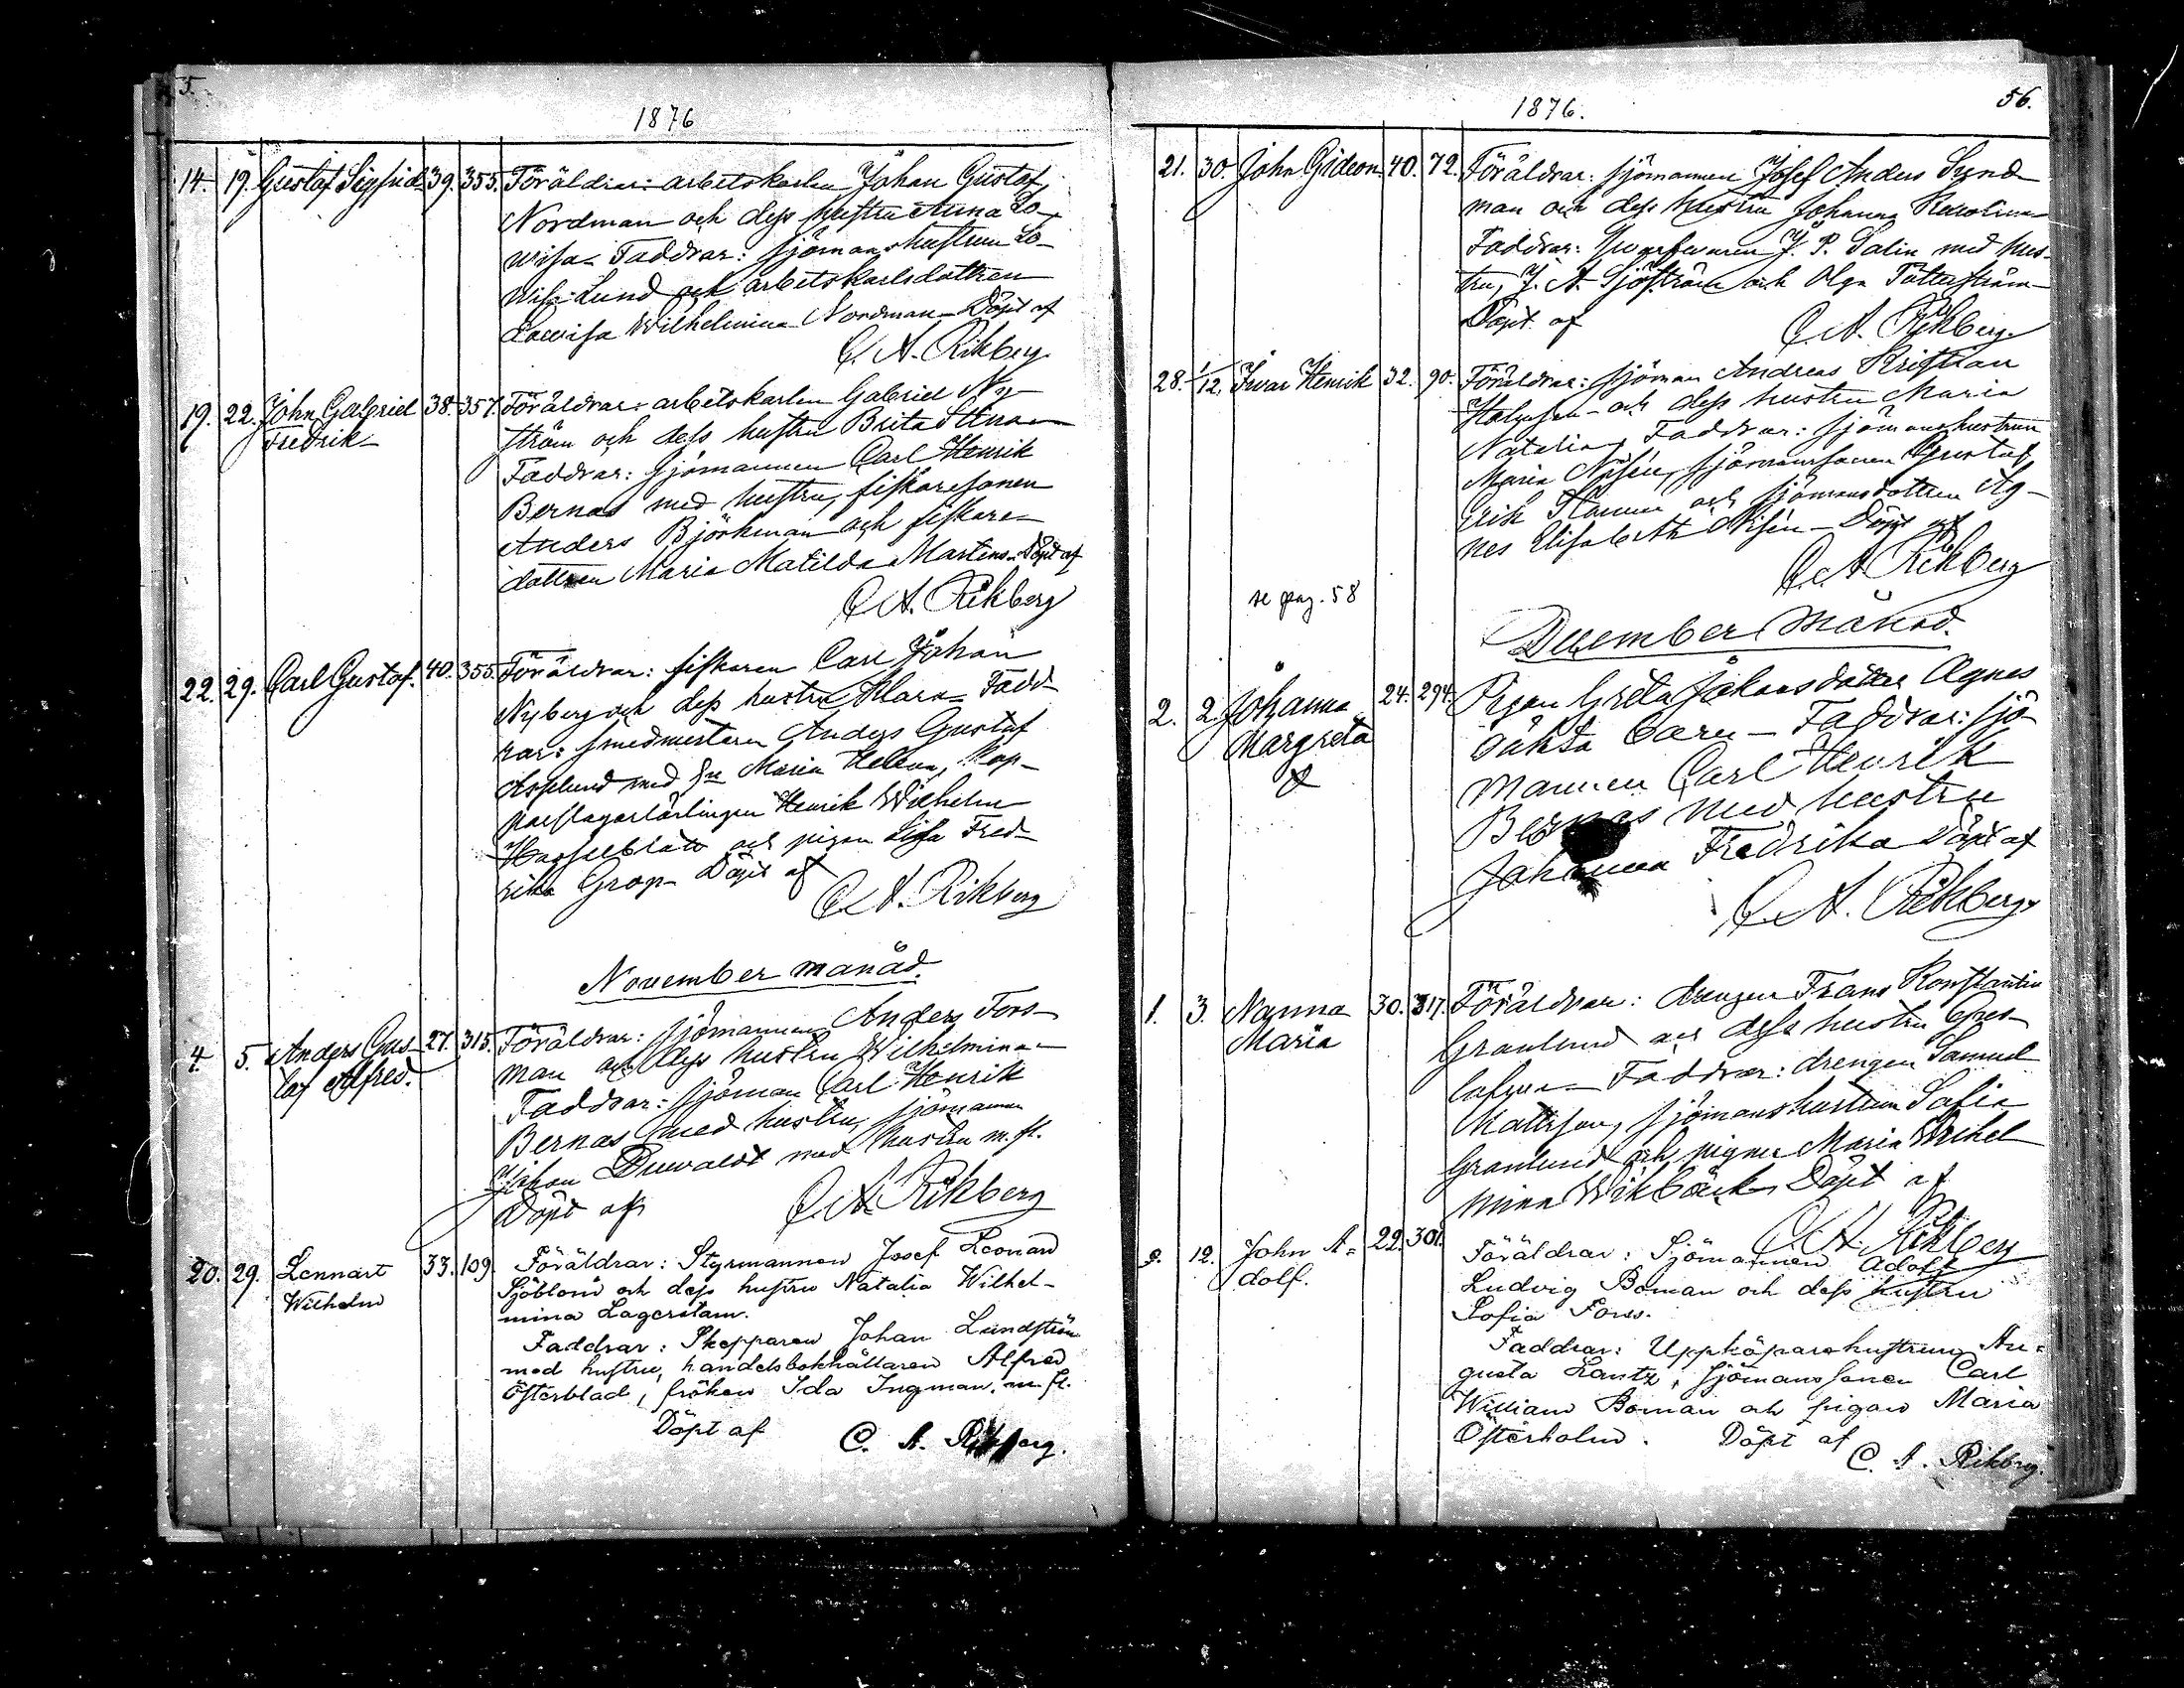 5.
1876
14. 19. Gustaf Sigfrid 39. 355. Föräldrar: arbetskarlen Johan Gustaf
Nordman och dess hustru Anna Lo-
wisa - Faddrar: sjömanshustrun Lo-
wisa Lund och arbetskarlsdottren
Lowisa Wilhelmina Nordman - Döpt af
C. A. Rikberg
19. 22. John Gabriel 38. 357. Föräldrar: arbetskarlen Gabriel Ny-
Fredrik ström och dess hustru Brita Stina
Faddrar: sjömannen Carl Henrik
Bernas med hustru, fiskaresonen
Anders Björkman och fiskare-
dottren Maria Matilda Martens - Döpt af
C. A. Rikberg
22. 29. Carl Gustaf. 40. 355. Föräldrar: fiskaren Carl Johan
Nyberg och dess hustru Klara - Fadd-
rar: smedmästaren Anders Gustaf
Asplund med Maria Helena, Kop-
parslagarlärlingen Henrik Wilhelm
Hasselblatt och pigan Lisa Fred-
rika Grop - Döpt af
C. A. Rikberg
November månad.
4. 5. Anders Gus- 27. 315. Föräldrar: sjömannen Anders Fors-
taf Alfred. man och dess hustru Wilhelmina
Faddrar: sjöman Carl Henrik
Bernas med hustru, sjömannen
Johan Duwaldt med hustru m. fl.
Döpt af C. A. Rikberg
20. 29. Lennart 33. 109. Föräldrar: Styrmannen Josef Leonard
Wilhelm Sjöblom och dess hustru Natalia Wilhel-
mina Lagerstam.
Faddrar: Skepparen Johan Lundström
med hustru, handelsbokhållaren Alfred
Österblad, fröken Ida Ingman, m. fl.
Döpt af C. A. Rikberg.
56.
1876.
21. 30. John Gideon 40. 72. Föräldrar: sjömannen Josef Anders Sund-
man och dess hustru Johanna Karolina
Faddrar: J. P. Salin med hus-
tru, J. A. Sjöström och Olga Tötterström -
Döpt af C. A. Rikberg
28. 1/12. Ivar Henrik 32. 90. Föräldrar: sjöman Andreas Kristian
och dess hustru Maria
Natalia, Faddrar: sjömanshustrun
Maria Nisén, sjömanssonen Gustaf
Erik och sjömansdottren Ag-
nes Elisabeth Nisén - Döpt af
C. A. Rikberg
se pag. 58
December månad.
2. 2. Johanna 24. 294. Pigan Greta Johansdotter Agnes
Margreta oäkta barn - Faddrar: sjö-
mannen Carl Henrik
Bernas med hustru
Johanna Fredrika Döpt af
C. A. Rikberg
1. 3. Nanna 30. 317. Föräldrar: drengen Frans Konstantin
Maria Granlund och dess hustru Gus-
tafwa - Faddrar: drengen Samuel
Mattsson, sjömanshustrun Sofia
Granlund och pigan Maria Wilhel
mina Wikbäck, Döpt af
C. A. Rikberg
9. 12. John A- 22. 301. Föräldrar: Sjömannen Adolf
dolf. Ludvig Boman och dess hustru
Sofia Forss.
Faddrar: Uppköparehustrun Au-
gusta Lantz, sjömanssonen Carl
William Boman och pigan Maria
Österholm. Döpt af
C. A. Rikberg.